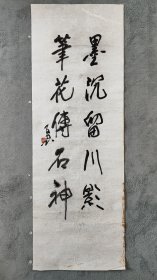 墨沉留川影
筆花傳石神